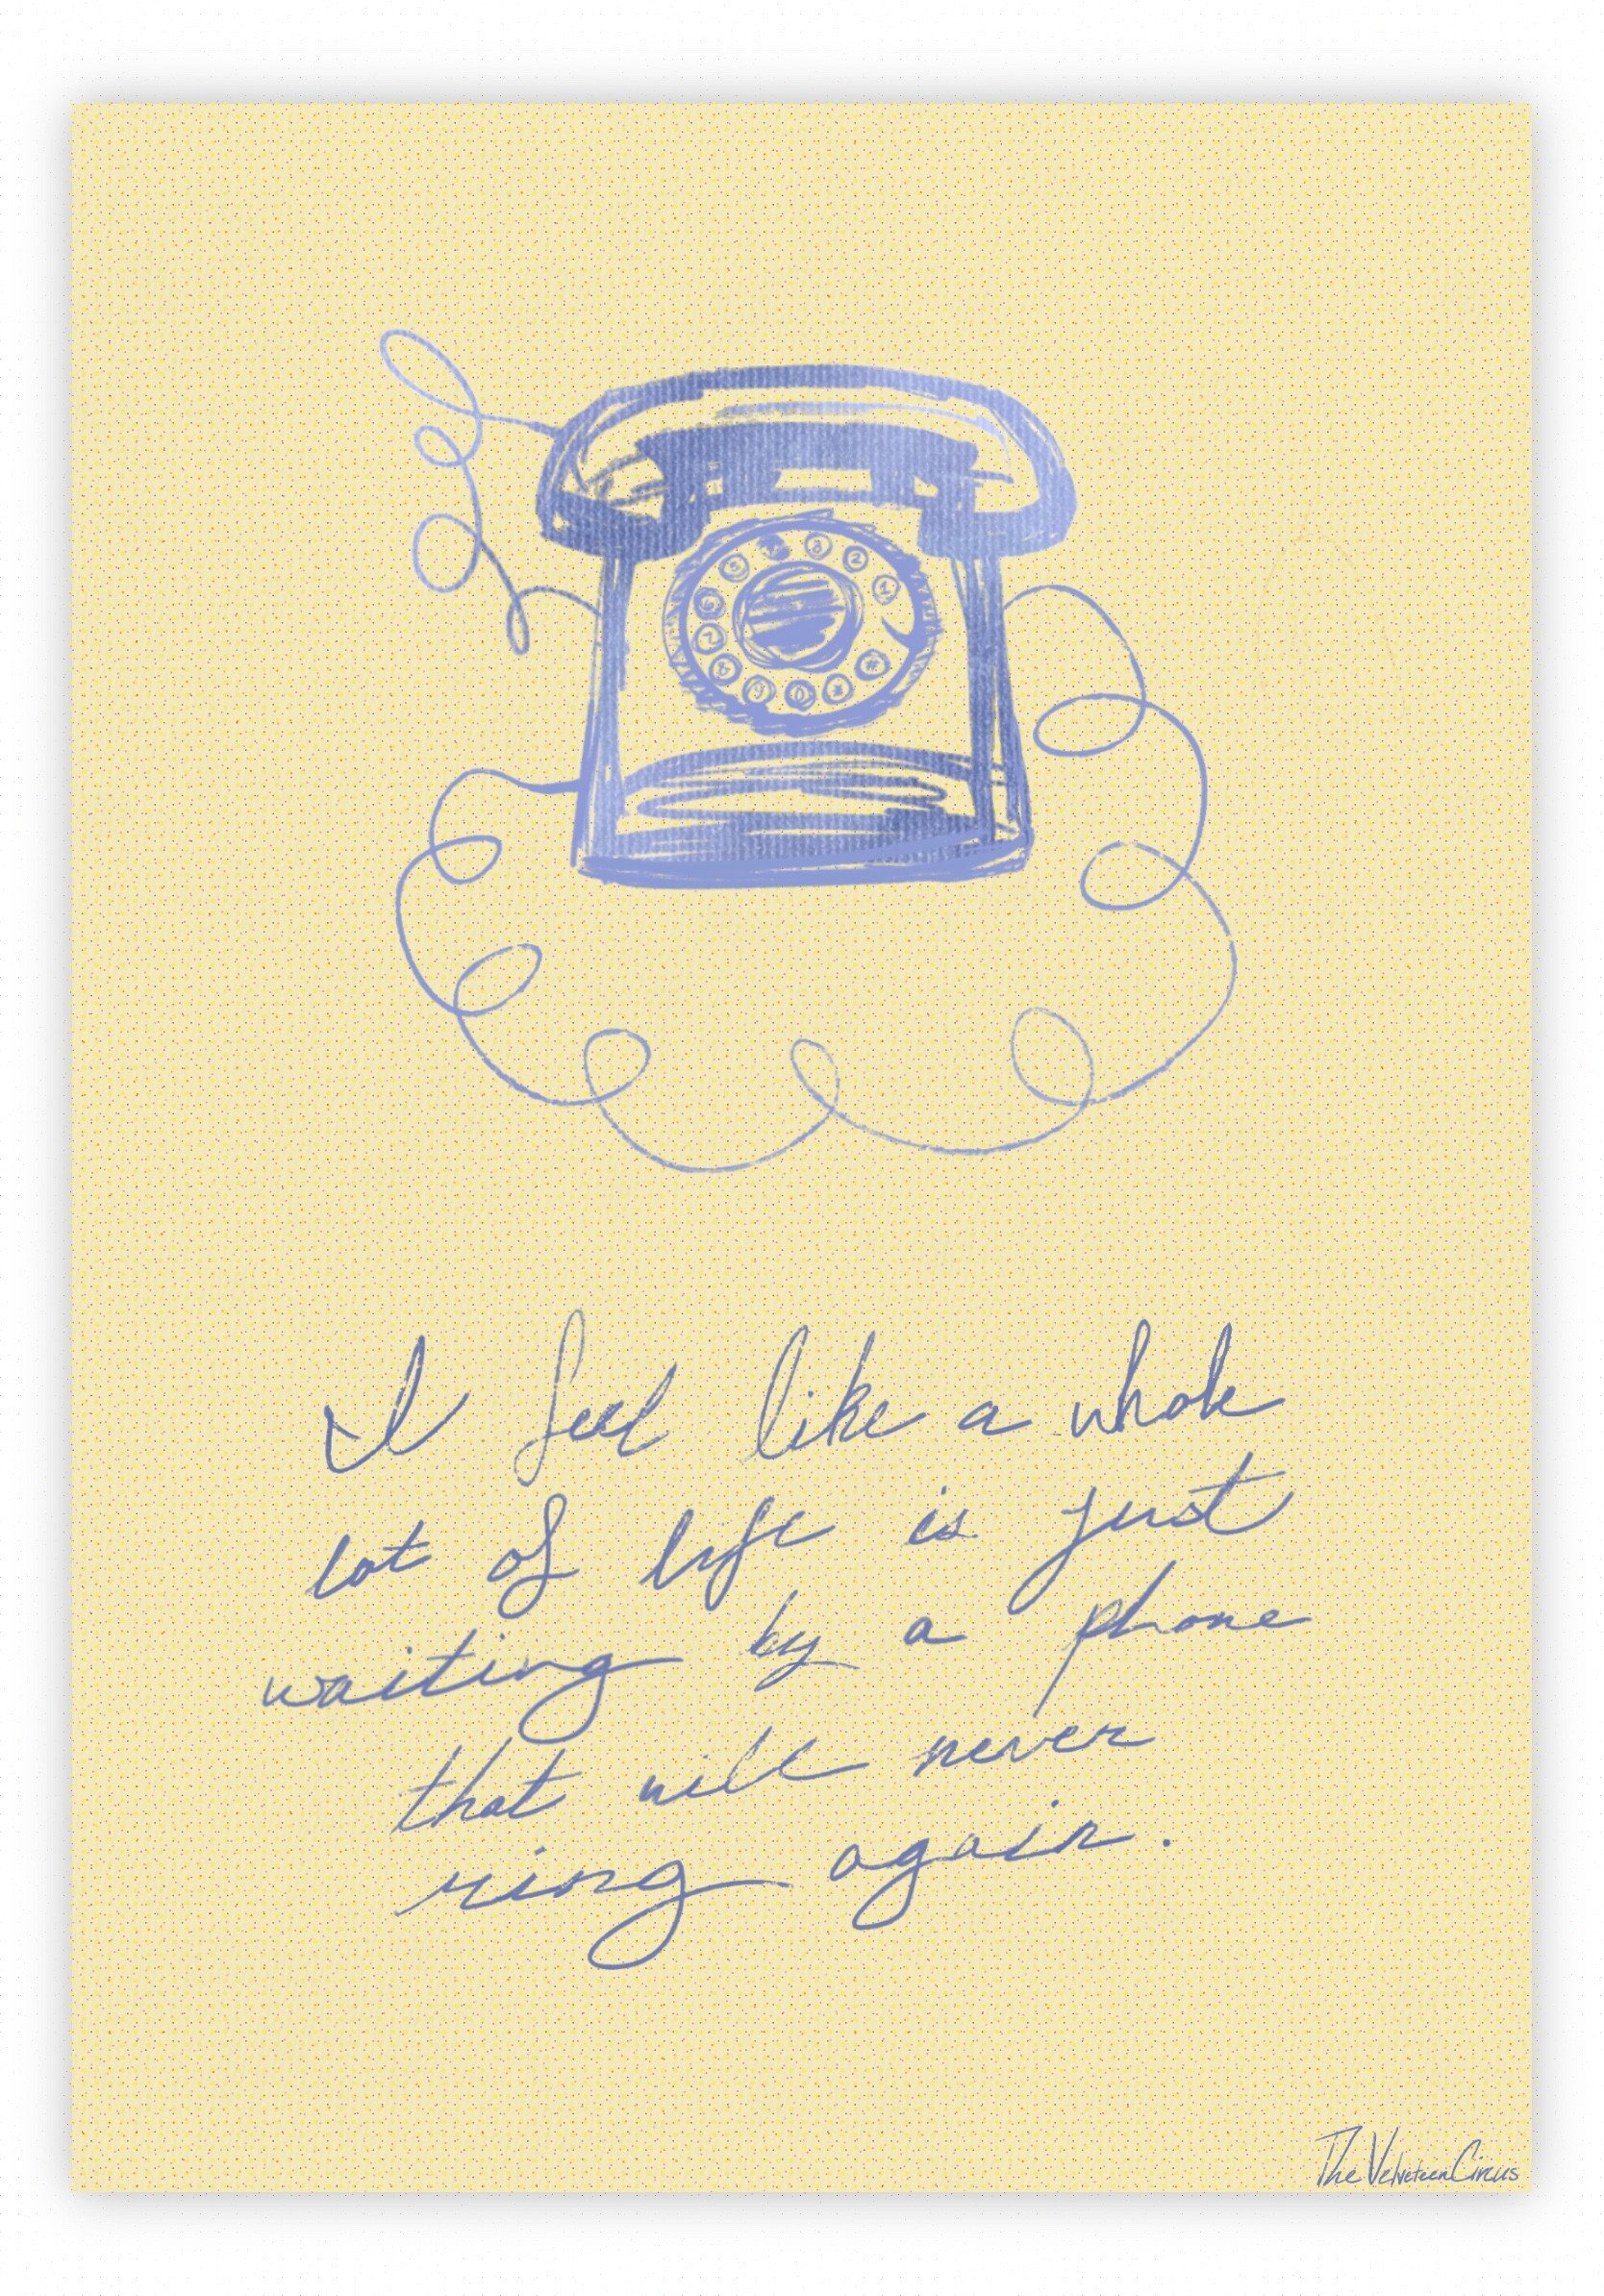 1
2
3
5
6
7
8
9
0
*
#
I feel like a whole
lot of life is just
waiting by a phone
that will never
ring again.
The Velveteen Circus